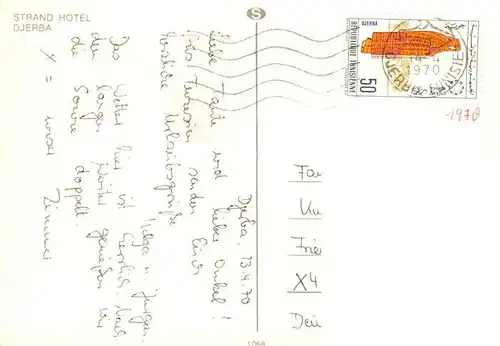 STRAND HOTEL
DJERBA
S
DJERBA
REPUBLIQUE TUNISIENNE
50
1970
DJERBA TUNISIE
1970
Djerba, 13.4.70
Liebe Tante und lieber Onkel!
Aus Tunesien senden Euch
herzliche Urlaubsgrüße
Helga u. Jürgen.
Das Wetter hier ist herrlich. Nach
dem langen Winter genießen wir
die Sonne doppelt.
X = unser Zimmer
Fa
Ku
Frie
X4
Deu
1068